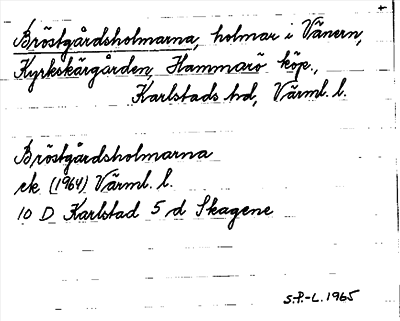 Bröstgårdsholmarna, holmar i Vänern,
Kyrkskärgården, Hammarö köp.,
Karlstads hd, Värml. l.
Bröstgårdsholmarna
ek (1964) Värml. l.
10 D Karlstad 5 d Skagene
S.P.-L. 1965